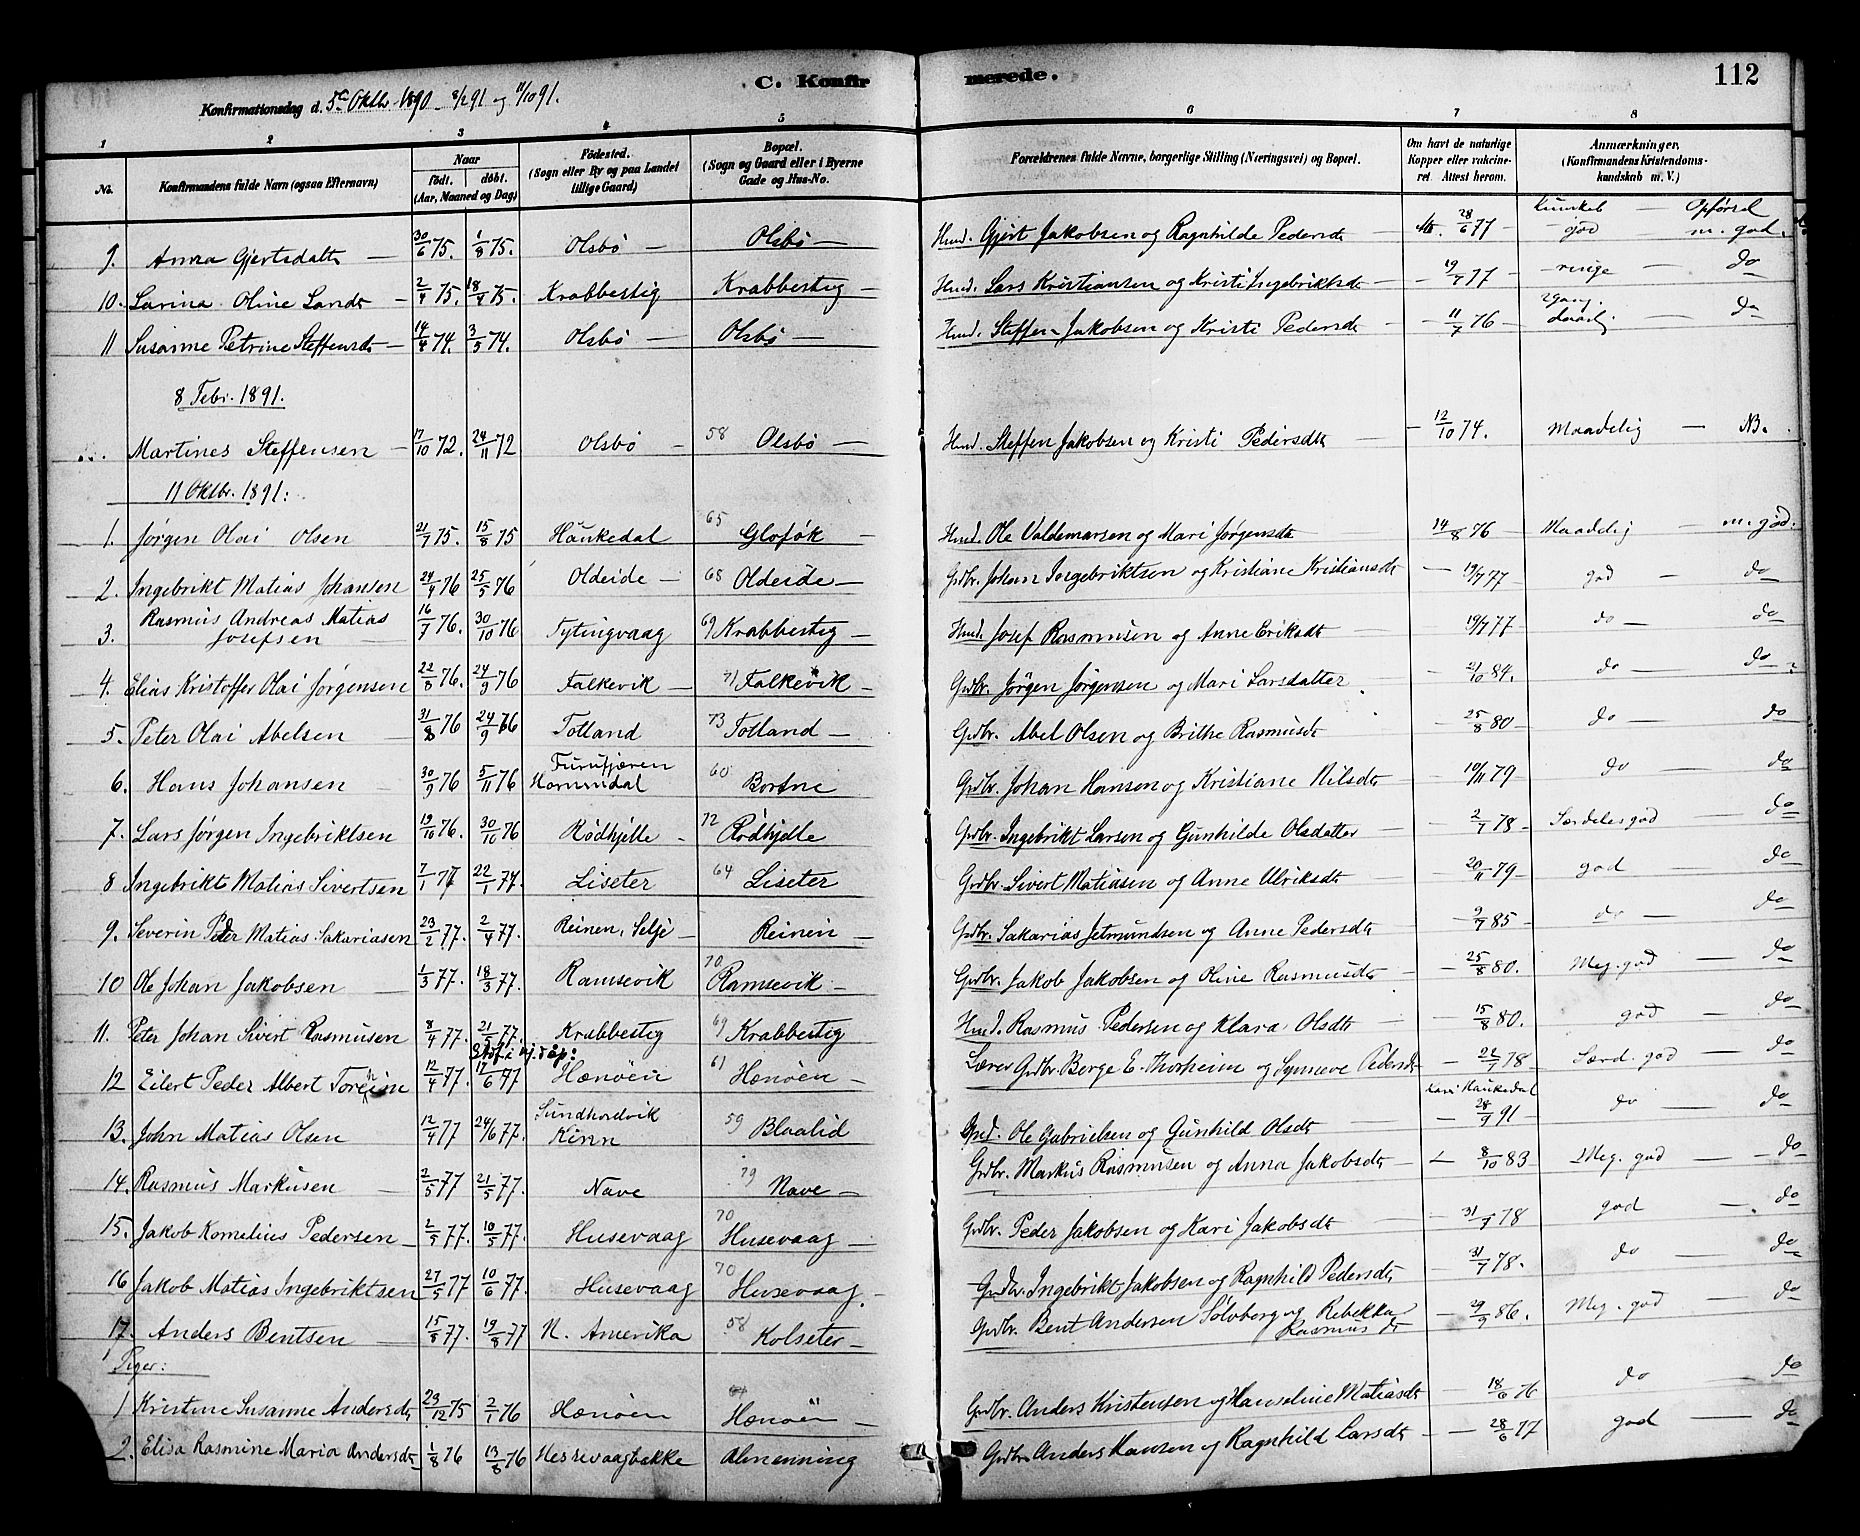 112
C. Konfirmerede.
Konfirmationsdag d. 5te Oktbr. 1890 – 8/2 91 og 11/10 91.
1 2 3 4 5 6 7 8
No. Konfirmandens fulde Navn (ogsaa Efternavn) Naar født. døbt. (Aar, Maaned og Dag) Fødested. (Sogn eller By og paa Landet tillige Gaard) Bopæl. (Sogn og Gaard eller i Byerne Gade og Hus-No. Forældrenes fulde Navne, borgerlige Stilling (Næringsvei) og Bopæl. Om havt de naturlige Kopper eller vakcineret. Attest herom. Anmærkninger. (Konfirmandens Kristendomskundskab m. V.)
9. Anna Gjertsdatter — 30/6 75. 1/8 75. Olsbø — Olsbø — Husd. Gjert Jakobsen og Ragnhilde Pedersdt 28/6 77 god — Opførsel m. god.
10. Larina Oline Larsdt — 2/4 75. 18/4 75. Krabbestig Krabbestig — Husd. Lars Kristiansen og Kristi Ingebriktsdt — 19/7 77 — ringe — do
11 Susanne Petrine Steffensdt — 14/4 74. 3/5 74. Olsbø — Olsbø — Husd. Steffen Jakobsen og Kristi Pedersdt — 11/7 76 — do
8 Febr. 1891.
Martines Steffensen — 17/10 72. 24/11 72 Olsbø — 58 Olsbø — Husd. Steffen Jakobsen og Kristi Pedersdtr — 12/10 74. Maadelig — NB.
11 Oktbr. 1891:
1. Jørgen Olai Olsen 21/7 75. 15/8 75 Haukedal 65 Gloføk — Husd. Ole Valdemarsen og Mari Jørgensdt 24/8 76 Maadelig — m. god.
2. Ingebrikt Matias Johansen 24/4 76 25/5 76 Oldeide — 68 Oldeide — Grdbr. Johan Ingebriktsen og Kristiane Kristiansdt — 19/7 77 god — do
3. Rasmus Andreas Matias Josefsen — 16/7 76. 30/10 76 Tytingvaag 69 Krabbestig — Husd. Josef Rasmusen og Anne Eriksdt 19/7 77 do — do
4. Elias Kristoffer Olai Jørgensen 22/8 76. 24/9 76 Falkevik — 71 Falkevik — Grdbr. Jørgen Jørgensen og Mari Larsdatter — 21/10 84. do — do
5. Peter Olai Abelsen — 31/8 76 24/9 76 Totland 73 Totland — Grdbr. Abel Olsen og Brithe Rasmusdt — 25/8 80 — do — do
6. Hans Johansen 30/9 76 5/11 76 Furufjæren Hornindal 60 Bortne Grdbr. Johan Hansen og Kristiane Nilsdt — 10/11 79 do — do
7. Lars Jørgen Ingebriktsen 19/10 76. 30/10 76 Rødhjelle — 72 Rødhjelle Grdbr. Ingebrikt Larsen og Gunhilde Olsdatter — 2/7 78 — Særdeles god — do
8 Ingebrikt Matias Sivertsen 7/1 77 22/1 77. Liseter 64 Liseter Grdbr. Sivert Matiasen og Anne Ulriksdt — 20/11 79 god — do
9. Severin Peder Matias Sakariasen 23/2 77. 2/4 77. Reinen, Selje Reinen — Grdbr. Sakarias Jetmundsen og Anne Pedersdt — 9/7 85 — do — do
10 Ole Johan Jakobsen — 1/3 77. 18/3 77. Ramsevik 70 Ramsevik — Grdbr. Jakob Jakobsen og Oline Rasmusdt — 25/8 80. Meg. god — do
11. Peter Johan Sivert Rasmusen 8/4 77. 21/5 77. Krabbestig 69 Krabbestig Husd. Rasmus Pedersen og Klara Olsdt — 15/8 80. god — do
12 Eilert Peder Albert Toreim 12/4 77. 17/6 77 Hænøen 61 Hænøen — Lærer Grdbr. Børge E. Thorheim og Synneve Pedersdt — 22/7 78 Særd. god — do
13. John Matias Olsen 12/4 77 24/6 77. Kinn 59 Blaalid Ole Gabrielsen og Gunhild Olsdt — Haukedal 28/9 91 do — do
14. Rasmus Markusen — 2/5 77 21/5 77. Nave 79 Nave — Grdbr. Markus Rasmusen og Anna Jakobsdt — 8/10 83 Meg. god — do
15. Jakob Kornelius Pedersen — 2/5 77. 10/5 77. Husevaag 70 Husevaag — Grdbr. Peder Jakobsen og Kari Jakobsdt — 31/7 78 god — do
16 Jakob Matias Ingebriktsen 27/5 77 10/6 77. Husevaag 70 Husevaag. Grdbr. Ingebrikt Jakobsen og Ragnhild Pedersdt, — 31/7 78. do — do
17. Anders Bentsen — 15/8 77. 19/8 77 N. Amerika 58 Kolseter — Grdbr. Bent Andersen Sølvberg og Rebekka Rasmusdt — 29/9 86. Meg. god — do
Piger:
1 Kristine Susanne Andersdt 23/12 75 2/1 76 Hænøen Hænöen — Grdbr. Anders Kristensen og Hanseline Matiasdt — 18/6 76 do — do
2. Elisa Rasmine Maria Andersdt 1/8 76 13/8 76 Hessevaagbakke Almenning Grdbr. Anders Hansen og Ragnhild Larsdt — 28/6 77 god — do